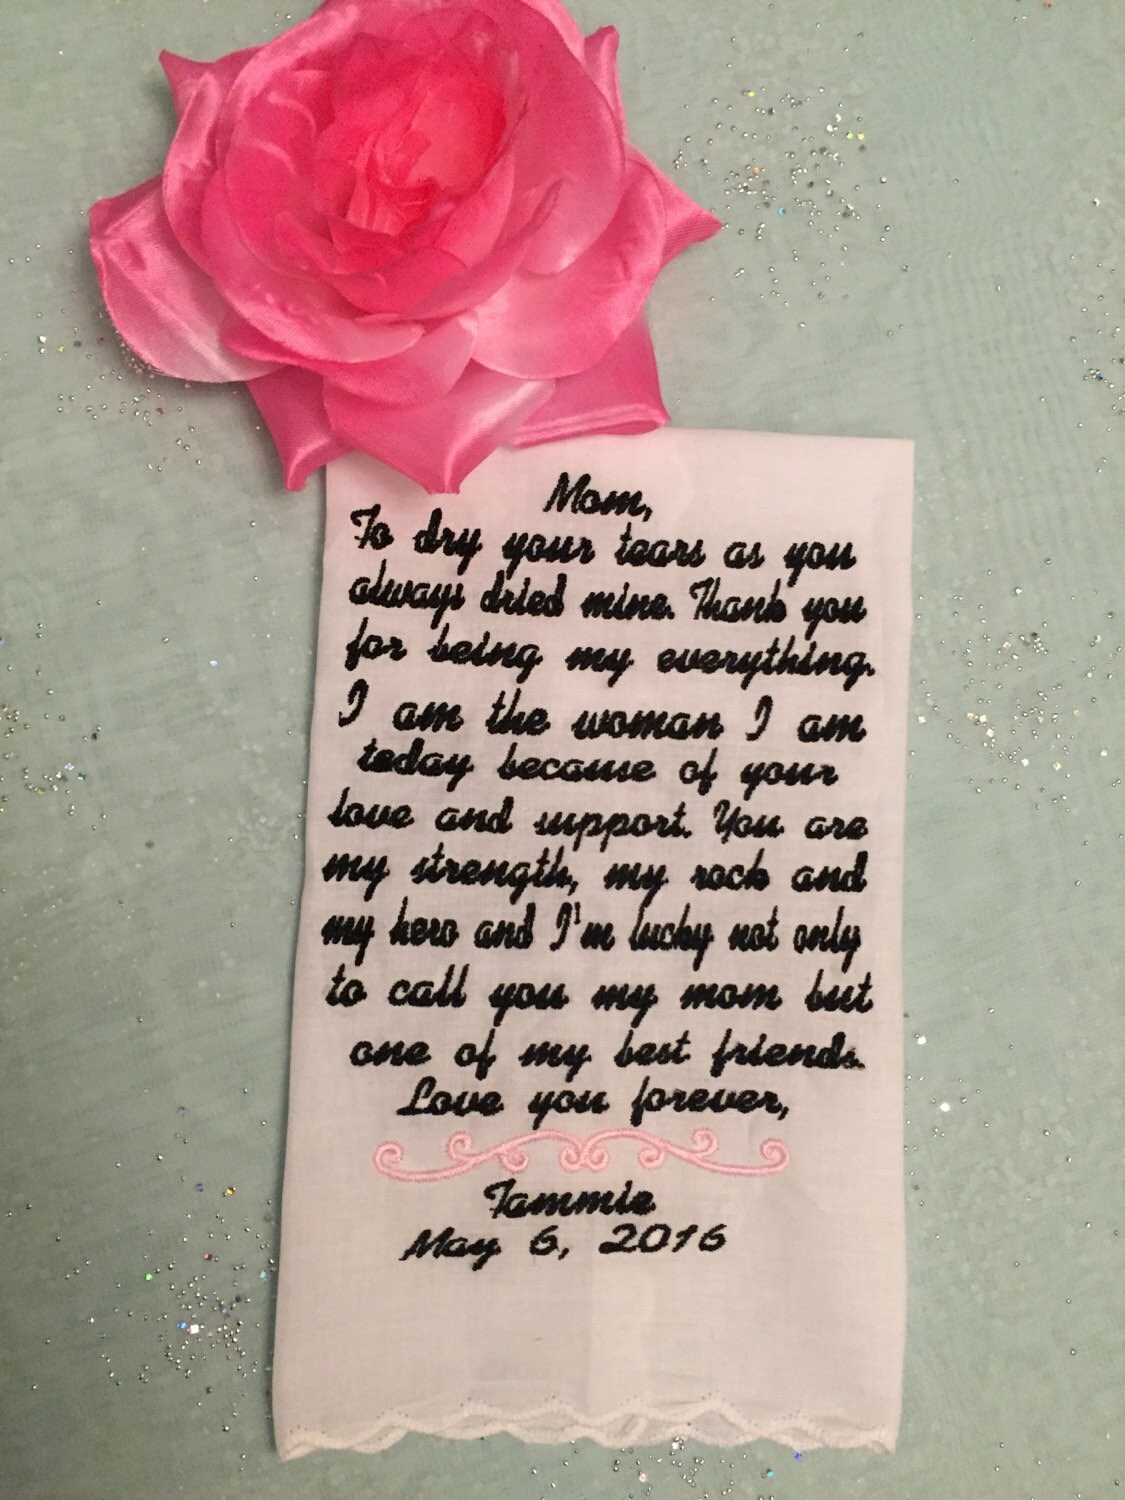 Mom,
To dry your tears as you
always dried mine. Thank you
for being my everything.
I am the woman I am
today because of your
love and support. You are
my strength, my rock and
my hero and I'm lucky not only
to call you my mom but
one of my best friends.
Love you forever,
Tammie
May 6, 2016